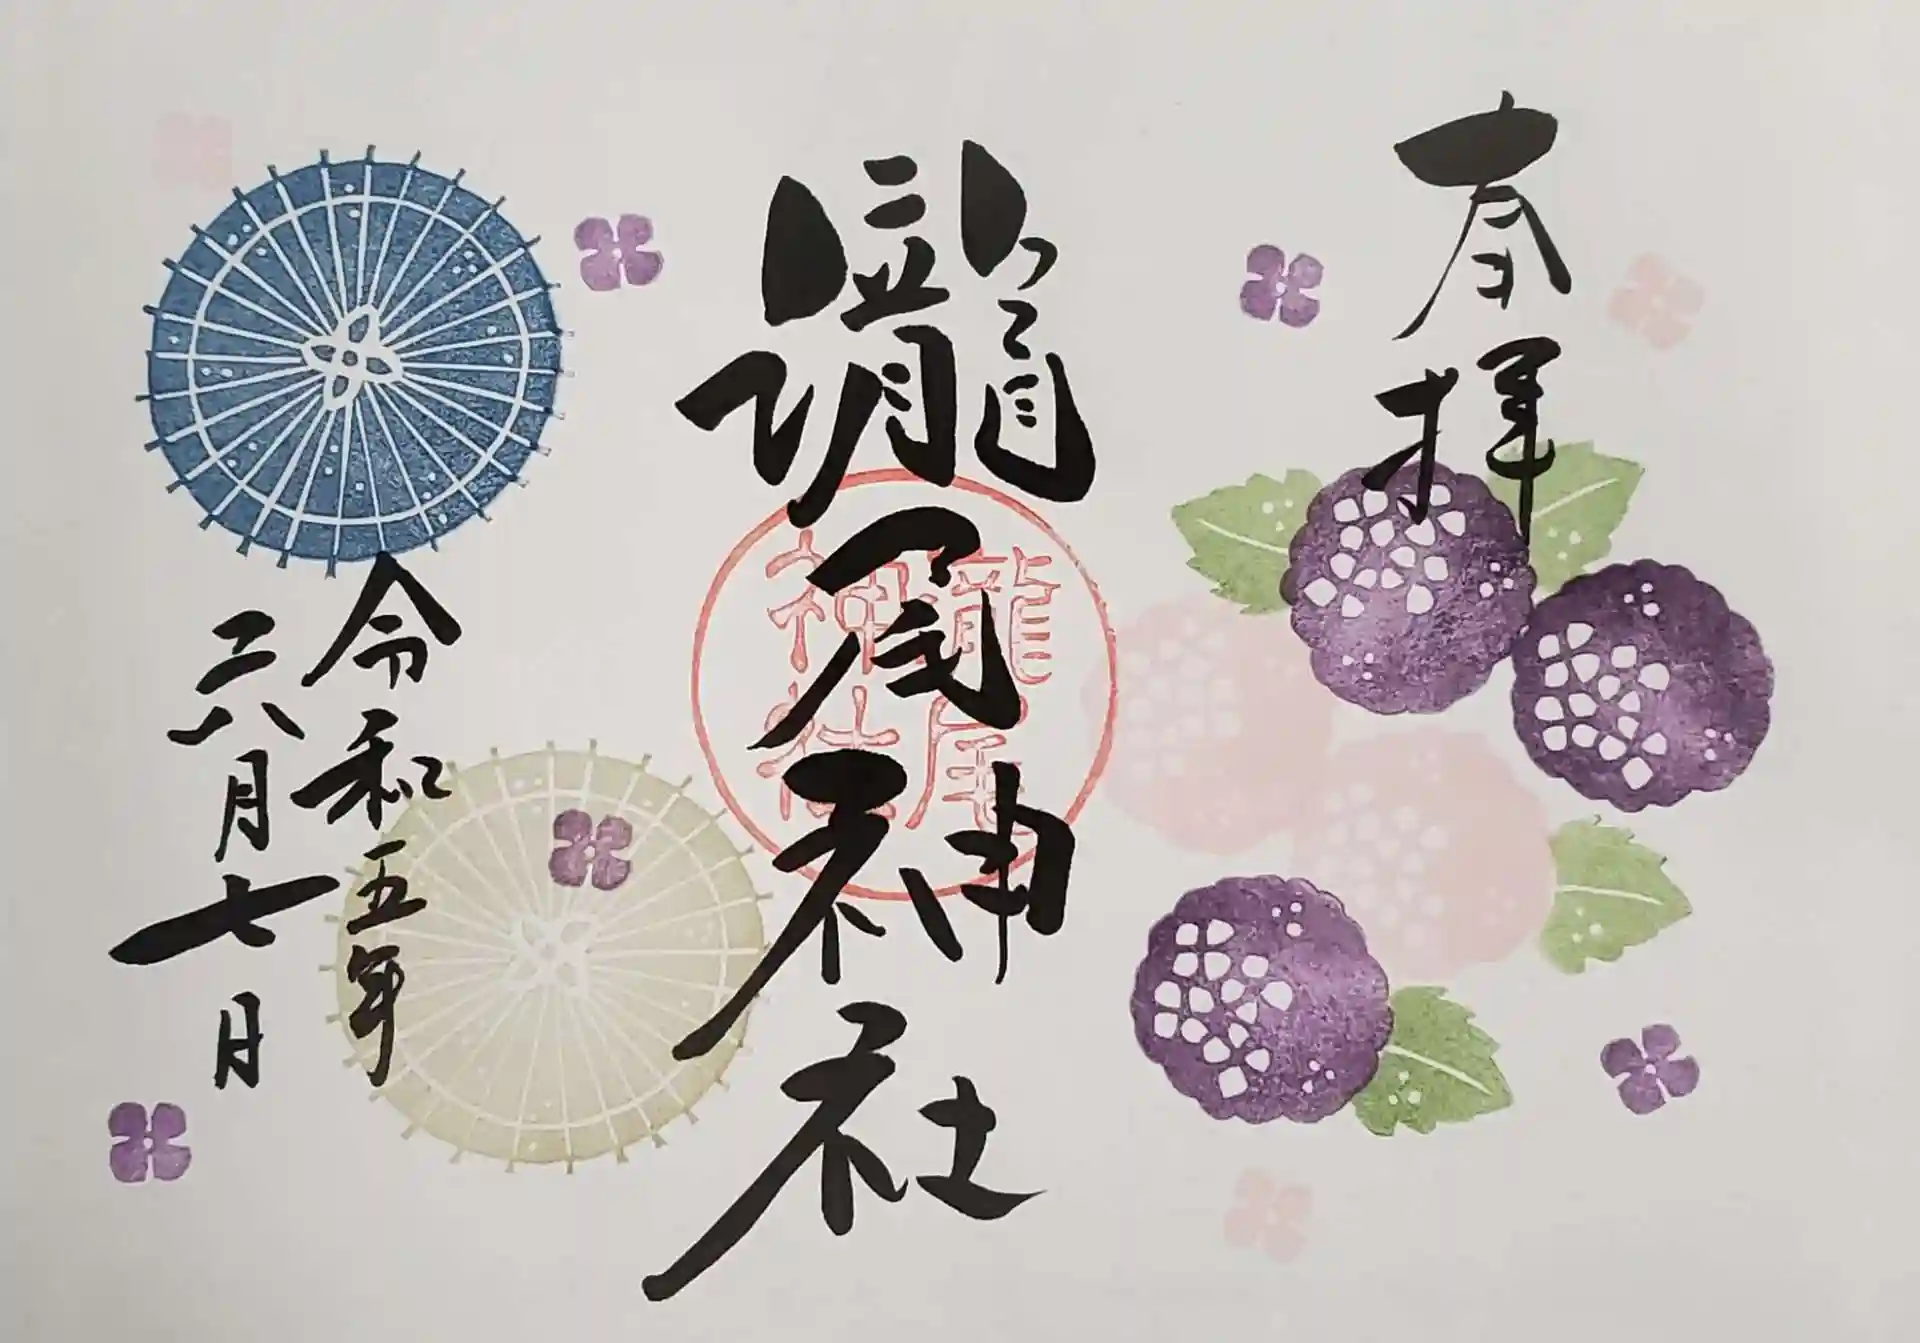 奉拝
龍尾神社
龍尾
神社
令和五年
六月七日